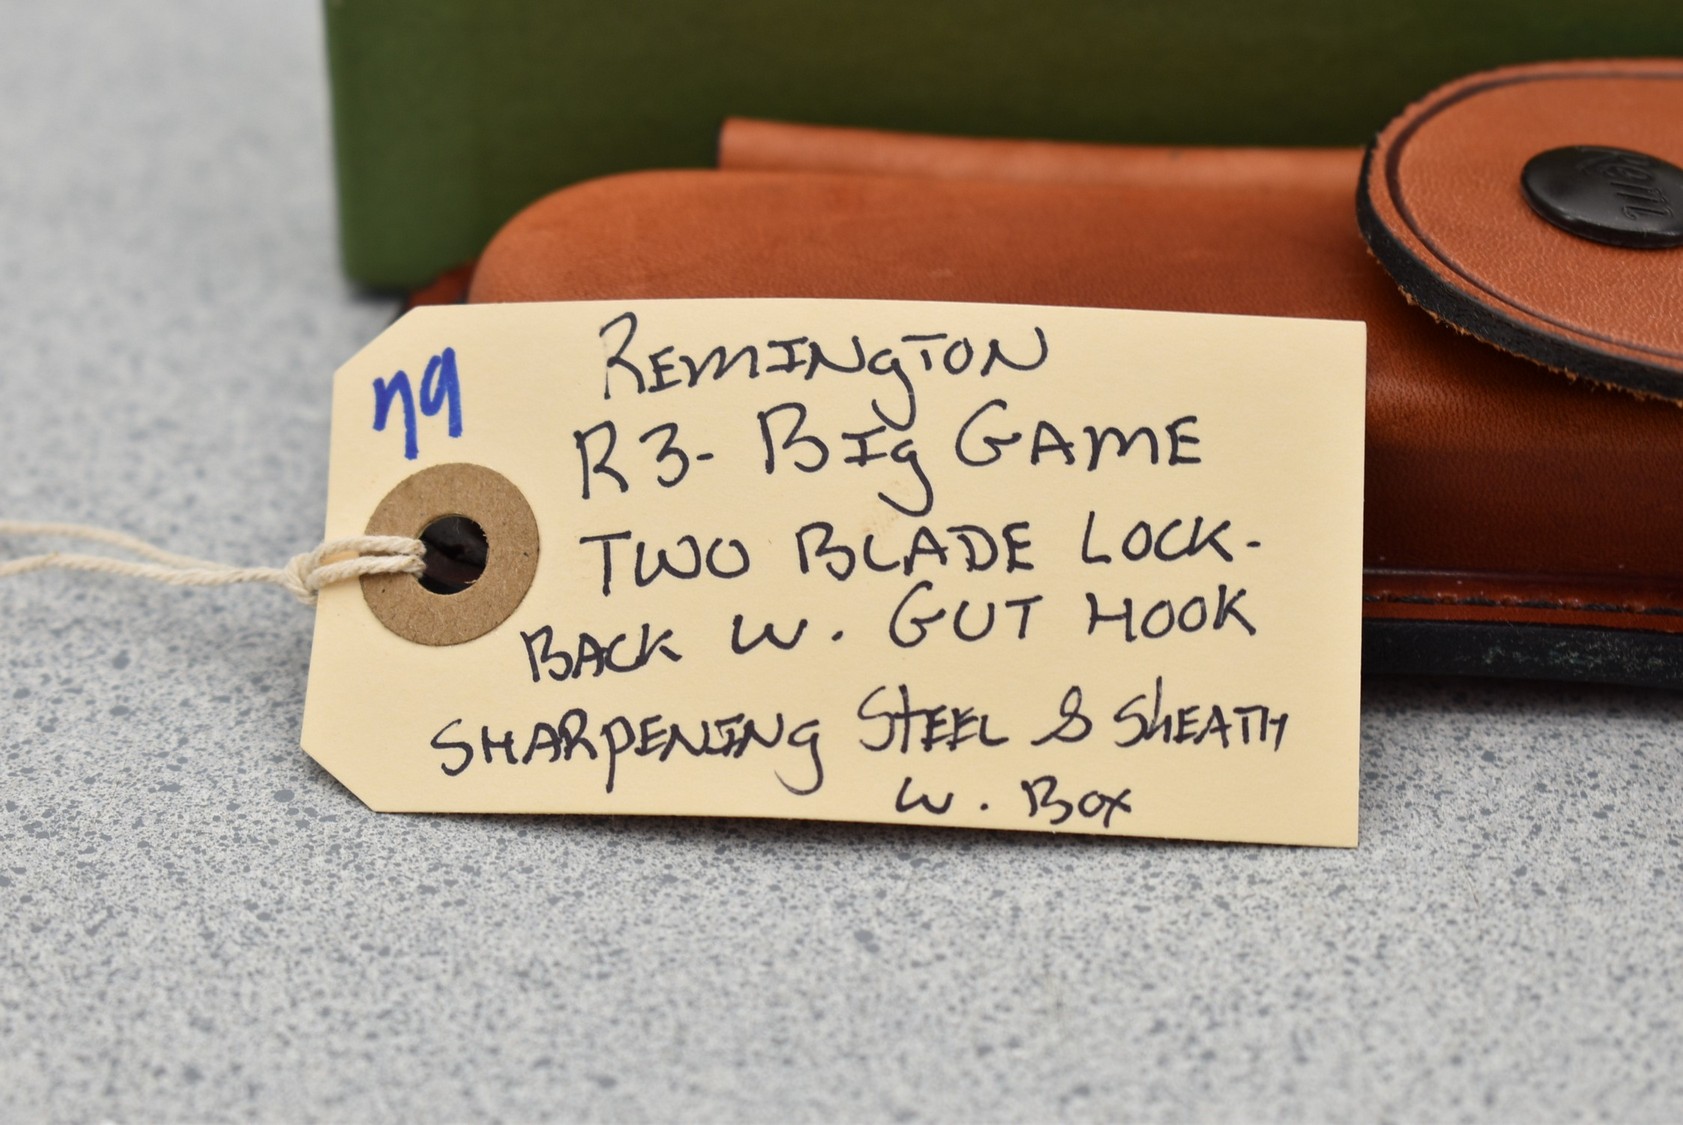 79
REMINgTON
R3- BIg GAME
TWO BLADE LOCK-
BACK W. GUT HOOK
SHARPENING STEEL & ShEATH
W. BOX